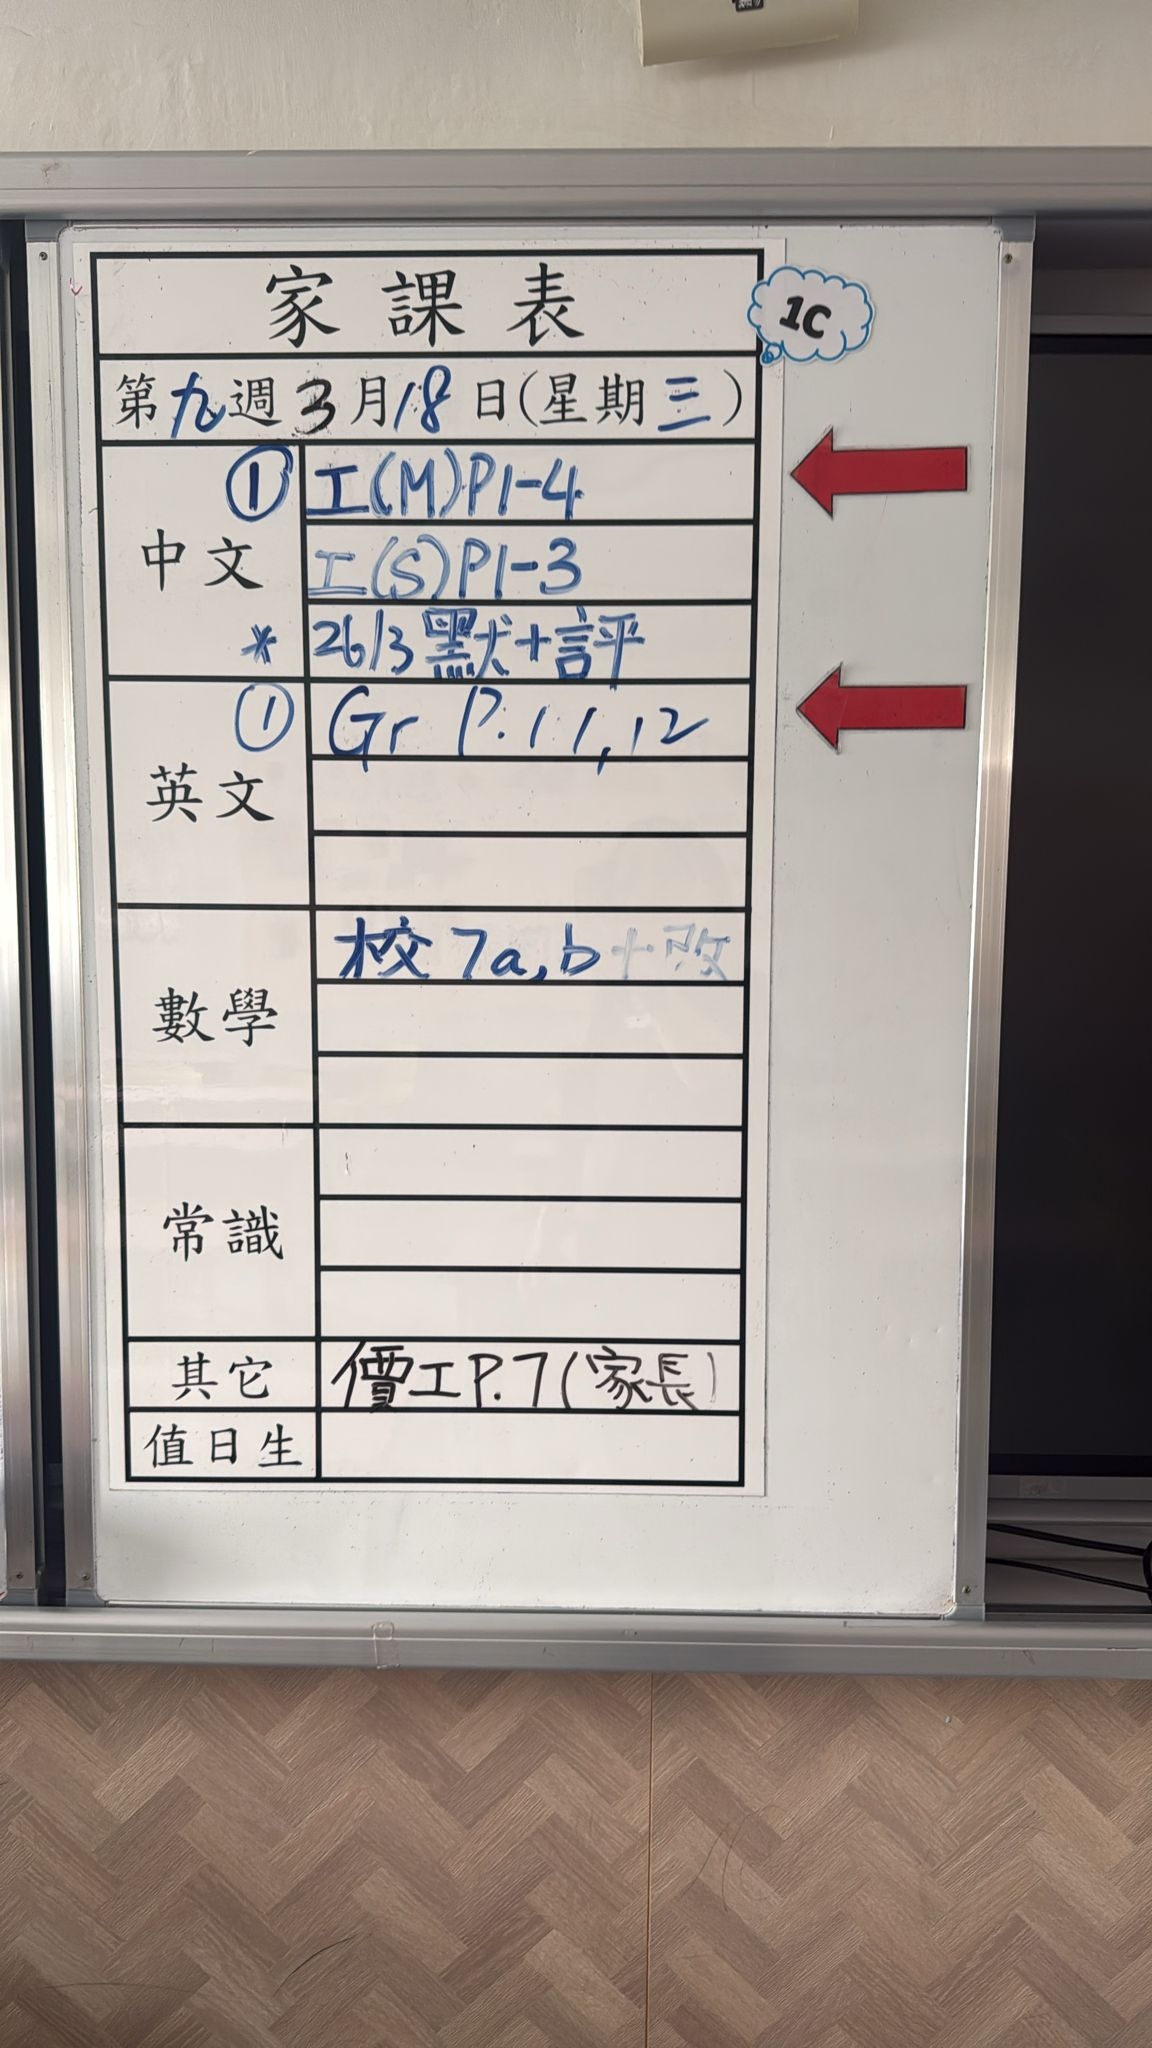 家課表
1C
第九週3月18日(星期三)
中文
① 工(M)P1-4
工(S)P1-3
* 26/3 默+評
英文
① Gr P.11,12
數學
校 7a,b+改
常識
其它
價工P.7(家長)
值日生